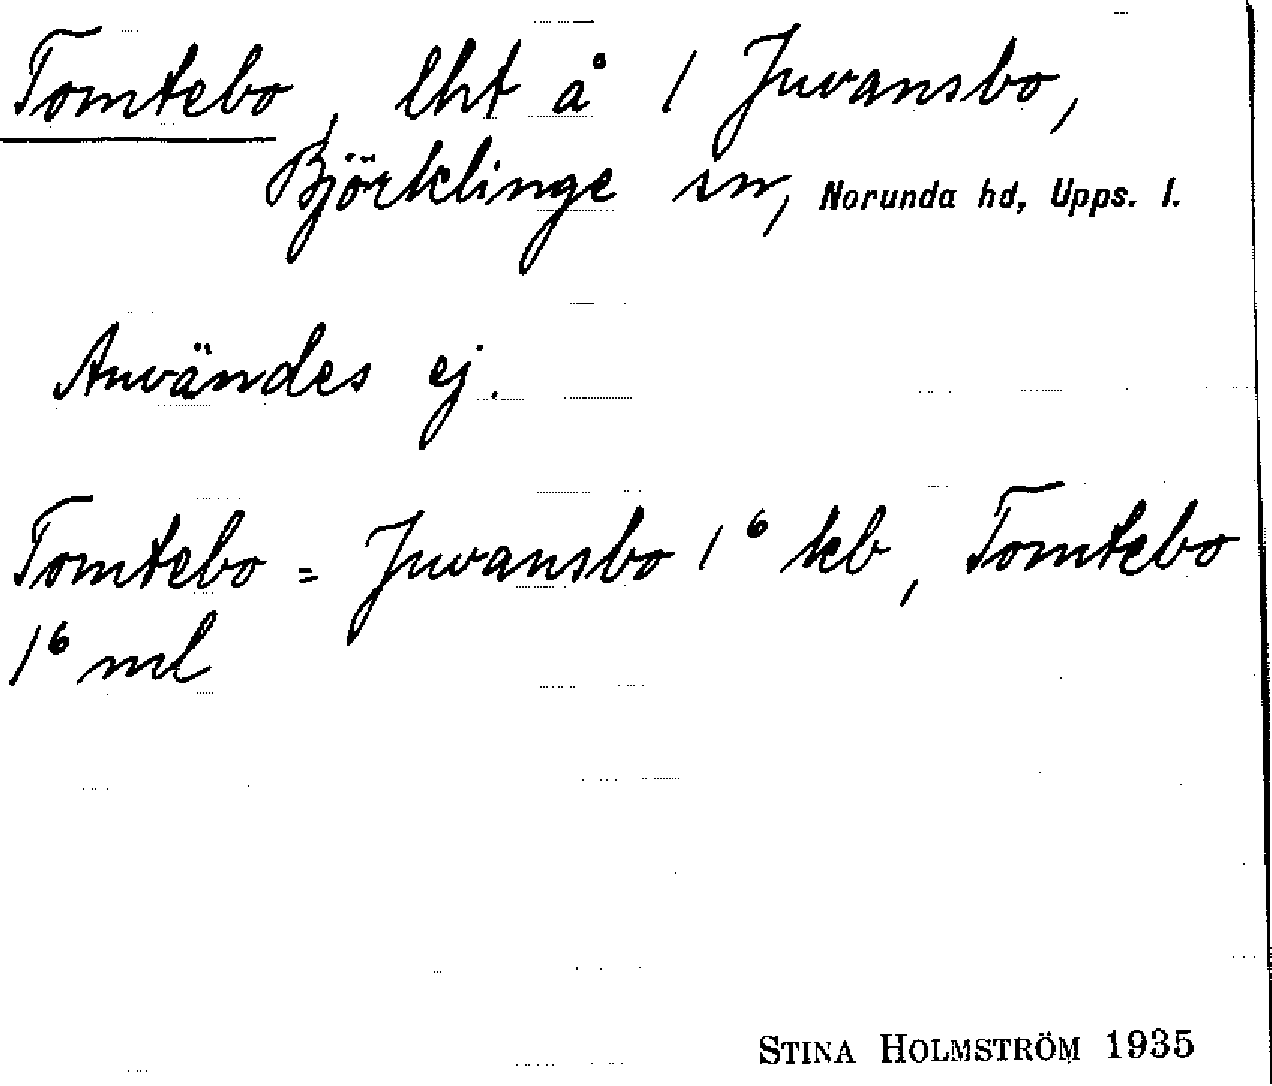 Tomtebo, lht å 1 Juvansbo,
Björklinge sn, Norunda hd, Upps. l.
Användes ej.
Tomtebo = Juvansbo 1⁶ kb, Tomtebo
1⁶ ml
STINA HOLMSTRÖM 1935